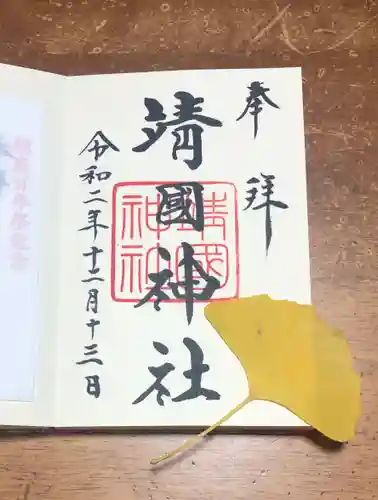 奉拝
靖國神社
令和二年十二月十三日
靖國
神社